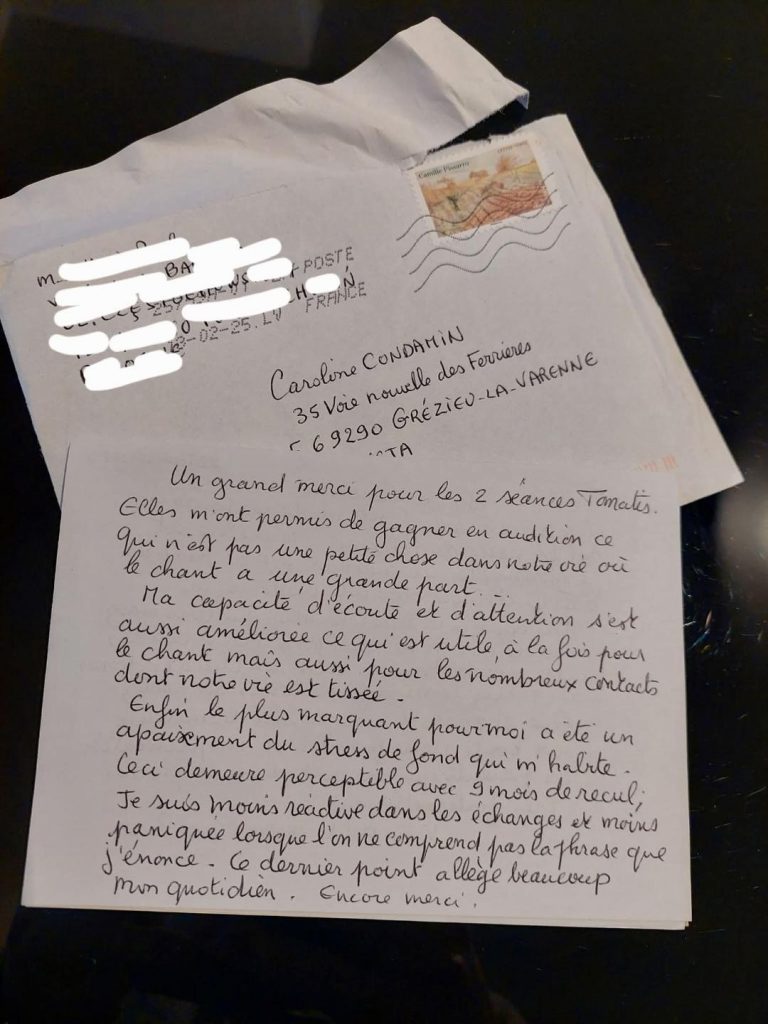 Camille Pissarro
LA POSTE
FRANCE
BA
-02-25
Caroline CONDAMIN
35 Voie nouvelle des Ferrières
69290 GRÉZIEU-LA-VARENNE
Un grand merci pour les 2 séances Tomatis.
Elles m'ont permis de gagner en audition ce
qui n'est pas une petite chose dans notre vie où
le chant a une grande part...
Ma capacité d'écoute et d'attention s'est
aussi améliorée ce qui est utile, à la fois pour
le chant mais aussi pour les nombreux contacts
dont notre vie est tissée.
Enfin le plus marquant pour moi a été un
apaisement du stress de fond qui m'habite.
Ceci demeure perceptible avec 9 mois de recul;
Je suis moins réactive dans les échanges et moins
paniquée lorsque l'on ne comprend pas la phrase que
j'énonce. Ce dernier point allège beaucoup
mon quotidien. Encore merci.